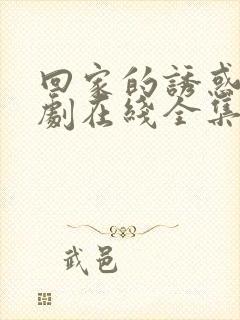 回家的誘惑
劇在綫全集
武邑